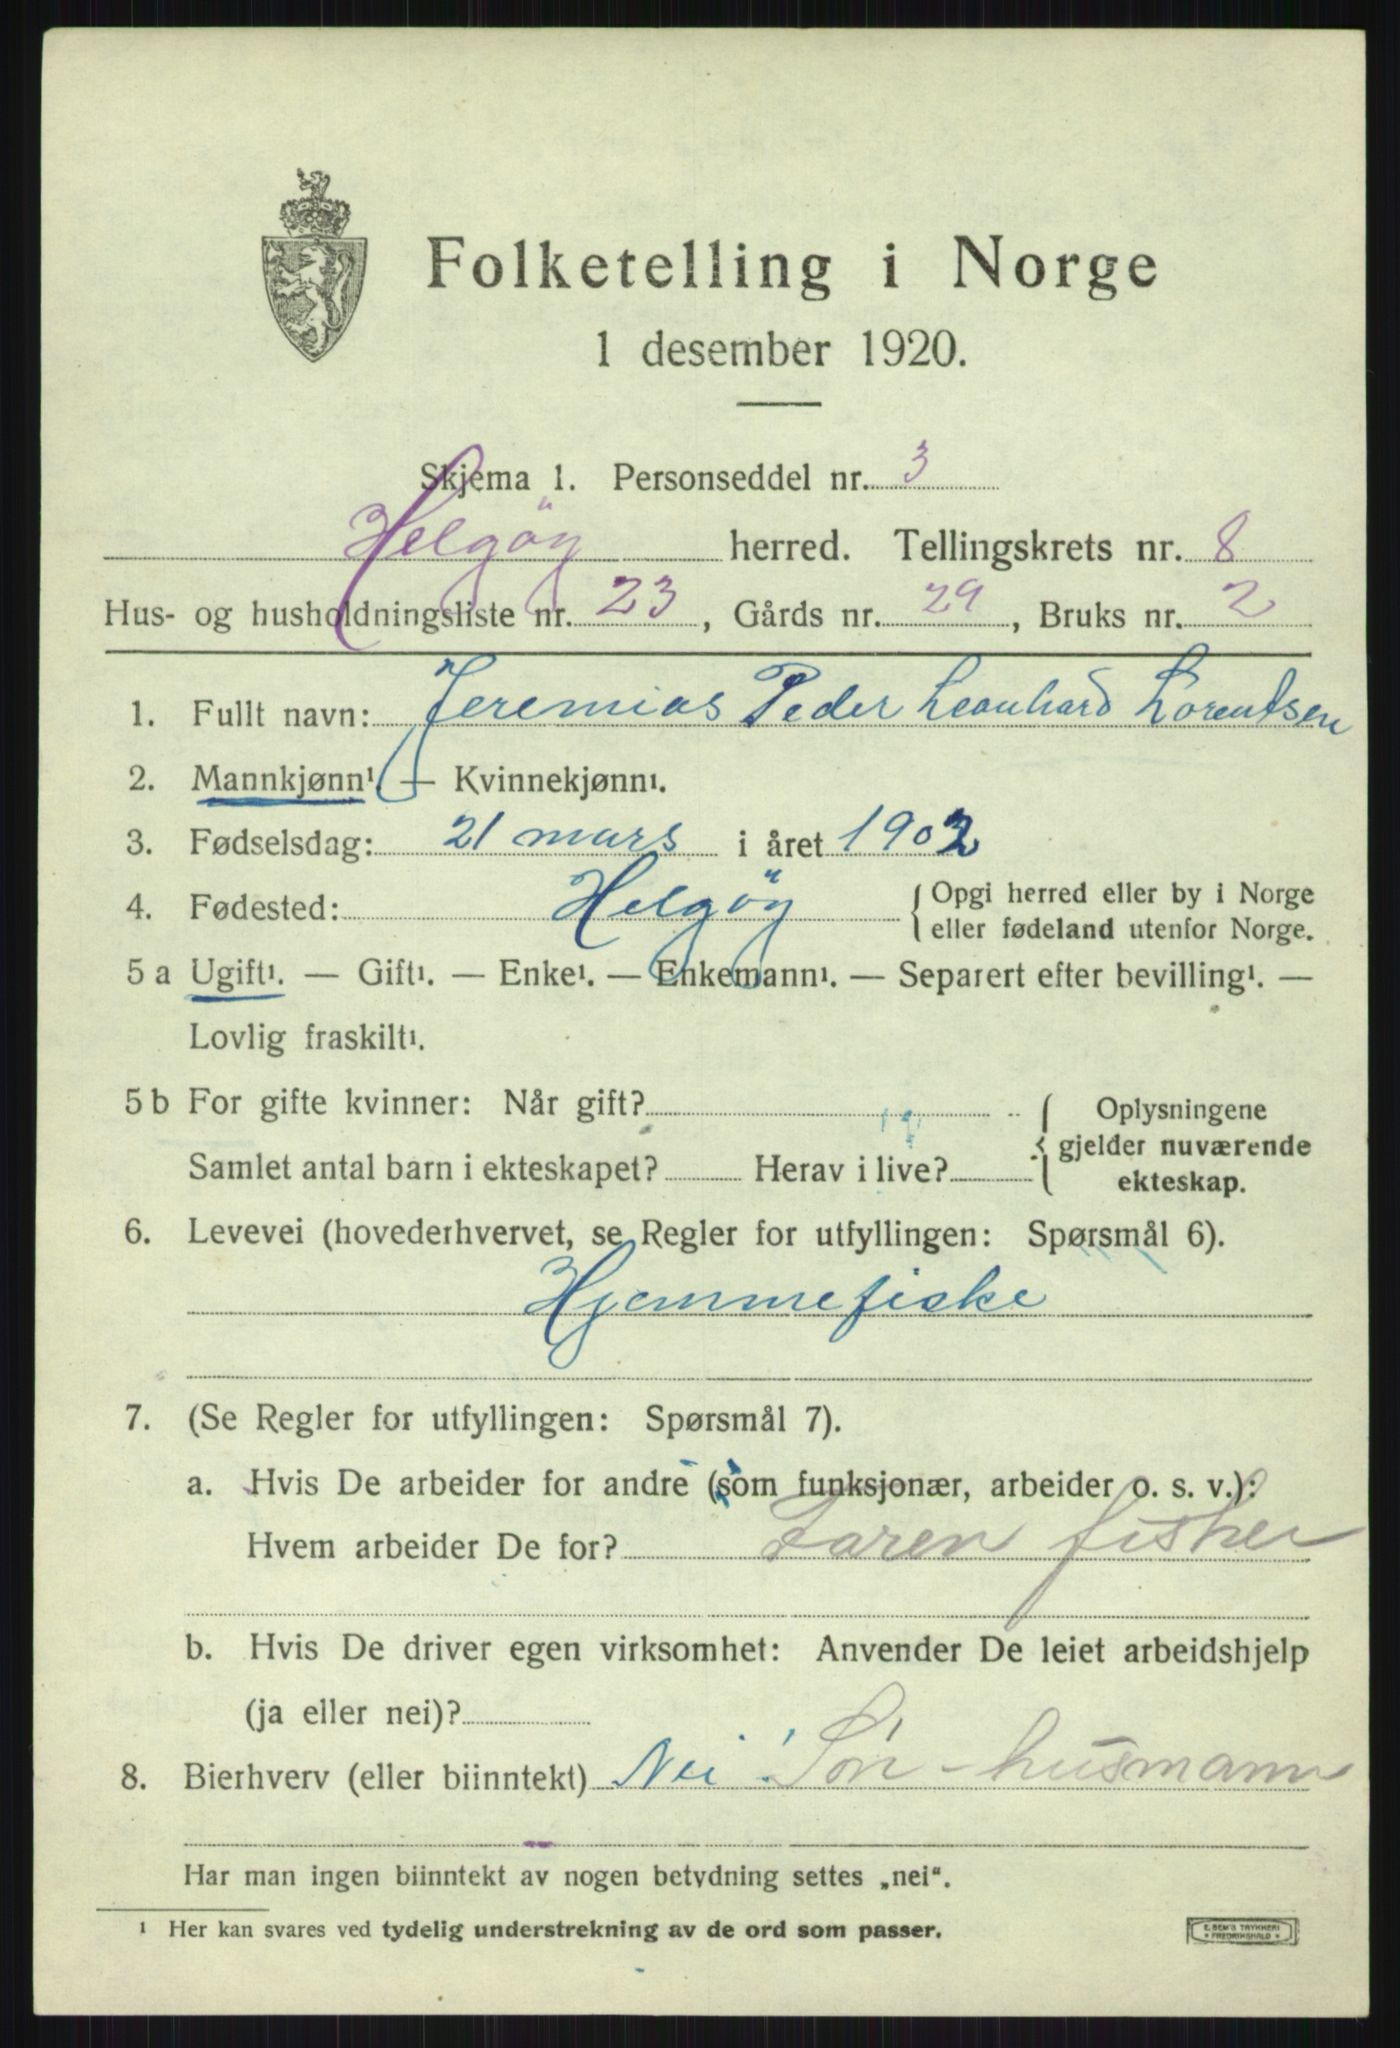 Folketelling i Norge
1 desember 1920.
Skjema 1. Personseddel nr. 3
Helgöy herred. Tellingskrets nr. 8
Hus- og husholdningsliste nr. 23, Gårds nr. 29, Bruks nr. 2
1. Fullt navn: Jeremias Peder Leonhard Lorentsen
2. Mannkjønn¹. — Kvinnekjønn¹.
3. Fødselsdag: 21 mars i året 1902
4. Fødested: Helgöy { Opgi herred eller by i Norge
eller fødeland utenfor Norge.
5 a Ugift¹. — Gift¹. — Enke¹. — Enkemann¹. — Separert efter bevilling¹. —
Lovlig fraskilt¹.
5 b For gifte kvinner: Når gift? { Oplysningene
gjelder nuværende
Samlet antal barn i ekteskapet? Herav i live?
ekteskap.
6. Levevei (hovederhvervet, se Regler for utfyllingen: Spørsmål 6).
Hjemmefiske
7. (Se Regler for utfyllingen: Spørsmål 7).
a. Hvis De arbeider for andre (som funksjonær, arbeider o. s. v.):
Hvem arbeider De for? Faren fisker
b. Hvis De driver egen virksomhet: Anvender De leiet arbeidshjelp
(ja eller nei)?
8. Bierhverv (eller biinntekt) Nei! Sön - husmann
Har man ingen biinntekt av nogen betydning settes „nei“.
¹ Her kan svares ved tydelig understrekning av de ord som passer.
E. SEM'S TRYKKERI
• FREDRIKSHALD •